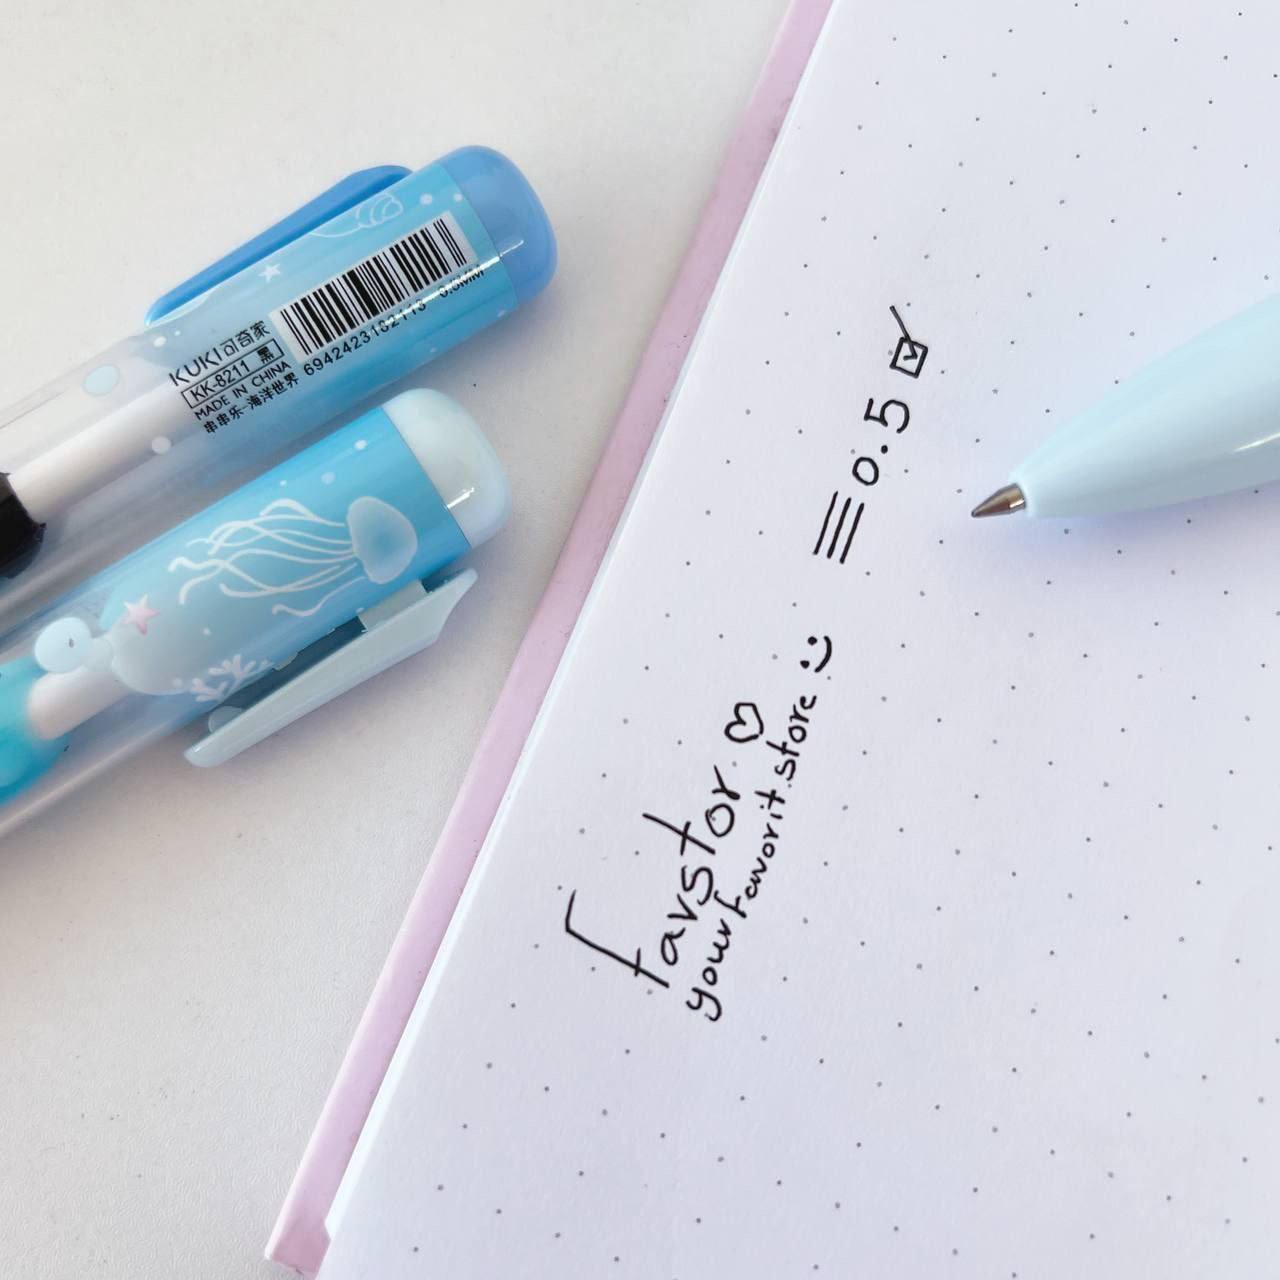 KUKI可奇家
KK-8211 黑
MADE IN CHINA
串串乐-海洋世界
6942423182113 0.5MM
favstor
yourfavorit.store :)
0.5